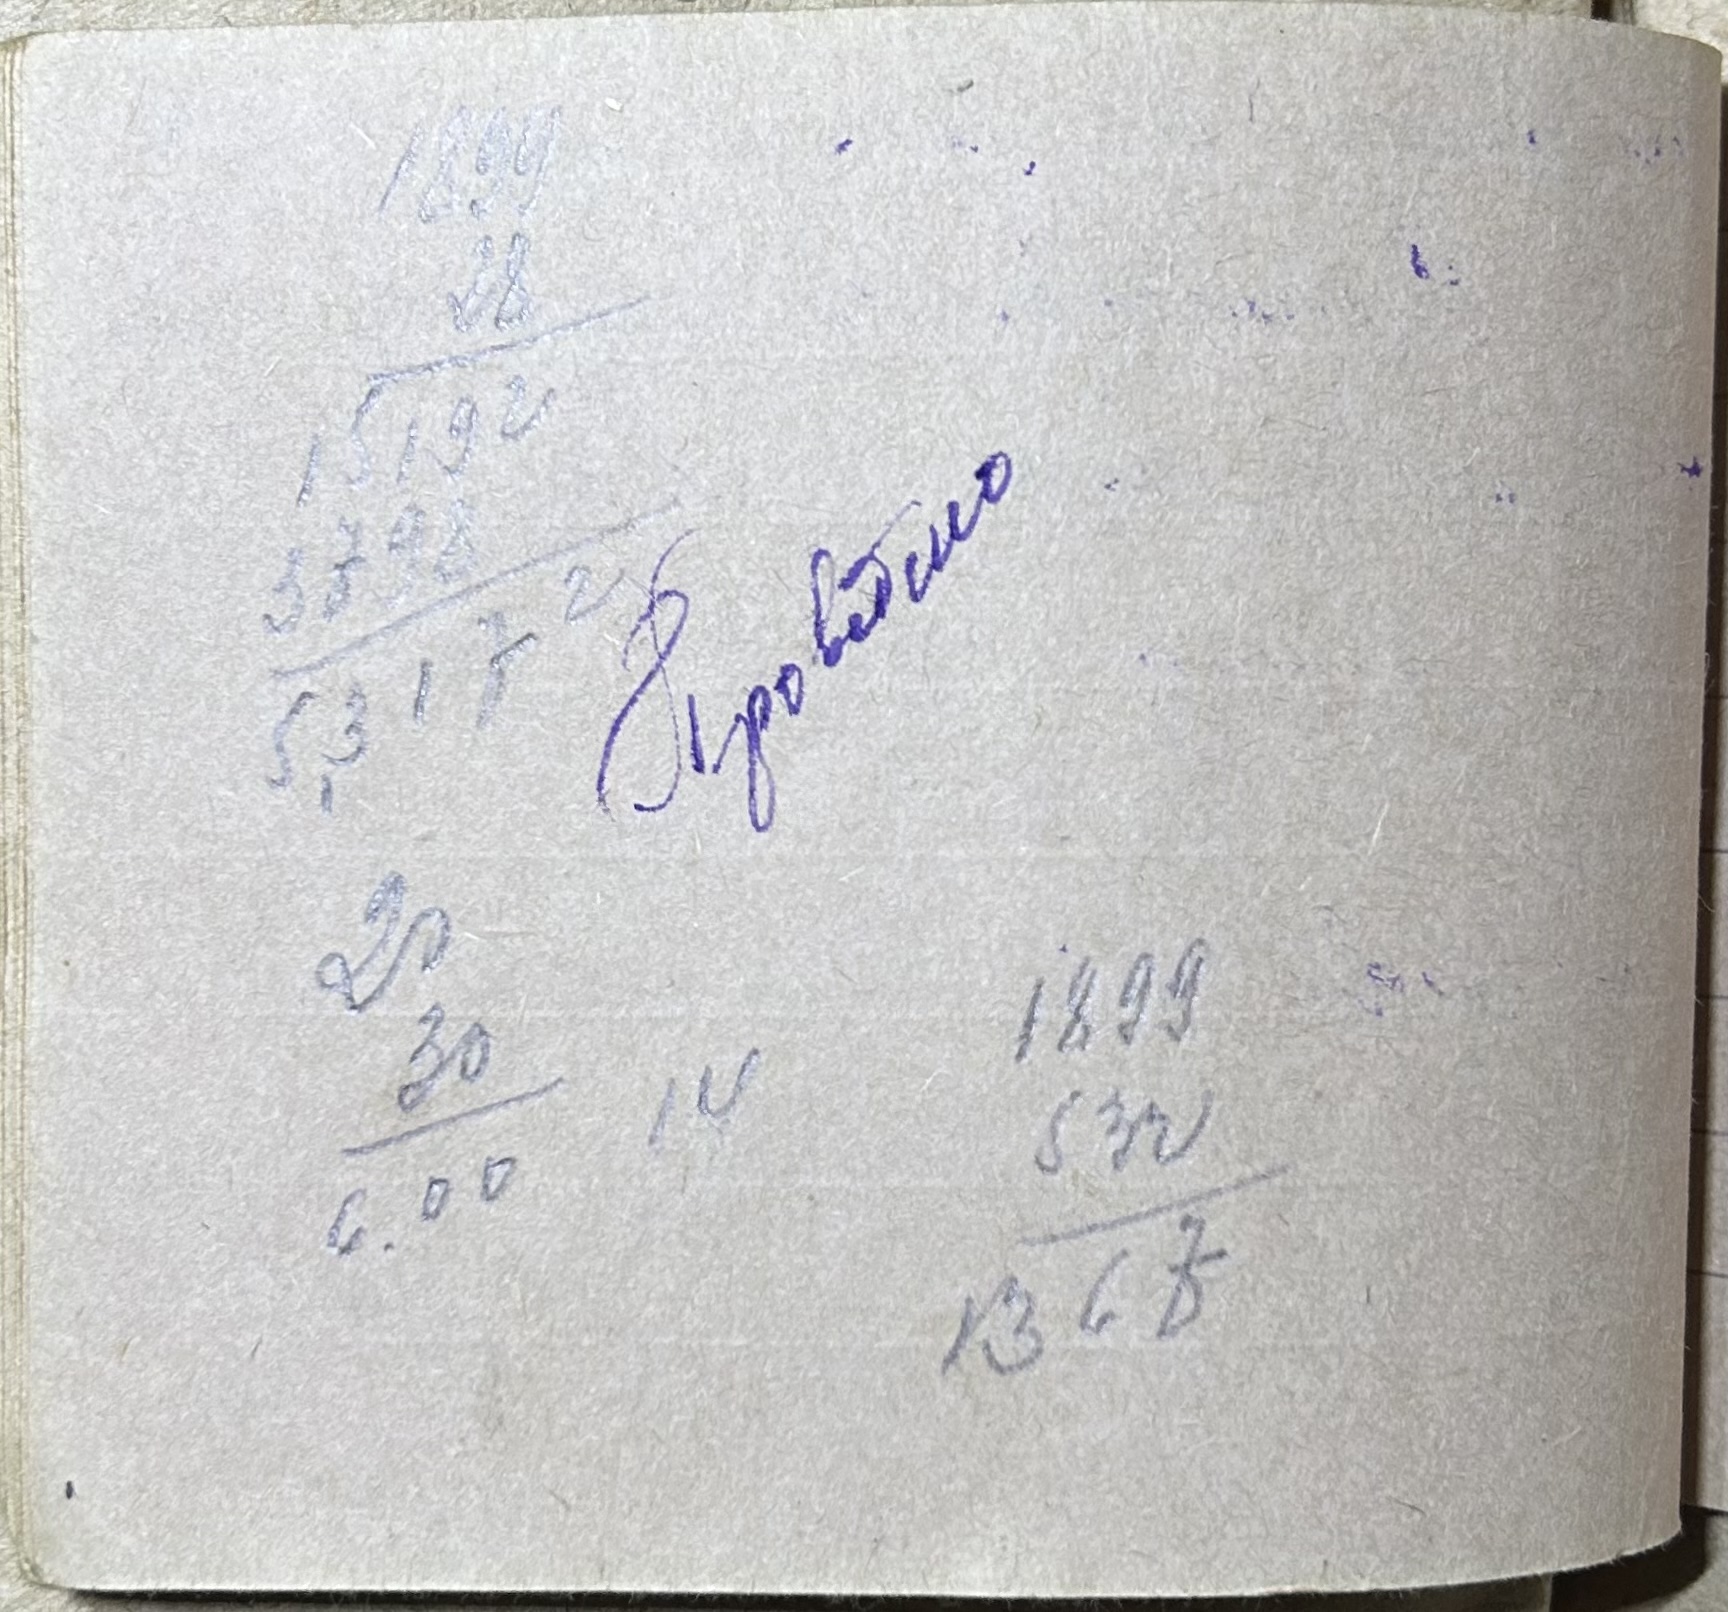 1899
28
15192
3798
53172
Проведено
20
30
6.00
14
1899
532
1367